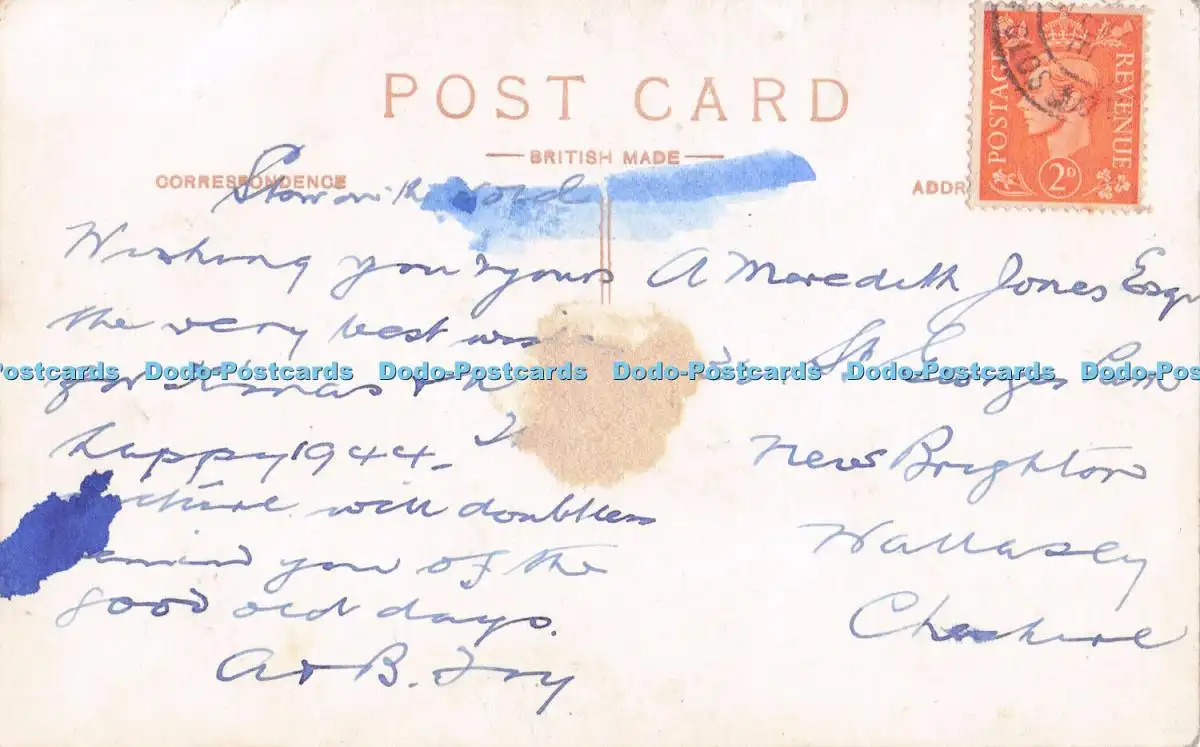 POST CARD
BRITISH MADE
CORRESPONDENCE
Stow on the Wold
Wishing you & yours
the very best
for Xmas &
happy 1944.
will doubtless
you of the
good old days.
A & B. Foy
ADDR
A Meredith Jones Esqr
St. Georges
New Brighton
Wallasey
Cheshire
POSTAGE REVENUE
2D
Dodo-Postcards Dodo-Postcards Dodo-Postcards Dodo-Postcards Dodo-Postcards